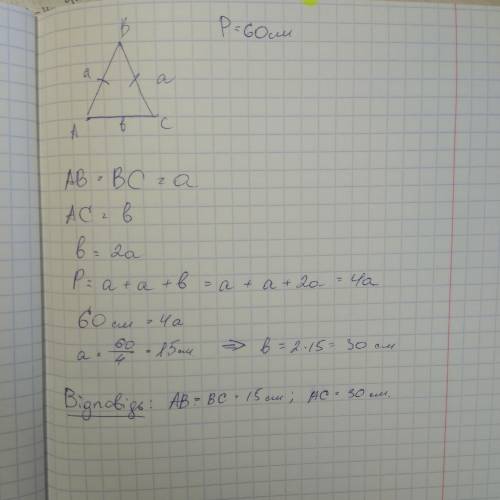 P = 60 см
B
a a
A в C
AB = BC = a
AC = в
в = 2a
P = a + a + в = a + a + 2a = 4a
60 см = 4a
a = 60/4 = 15 см ⇒ в = 2·15 = 30 см
Відповідь: AB = BC = 15 см; AC = 30 см.